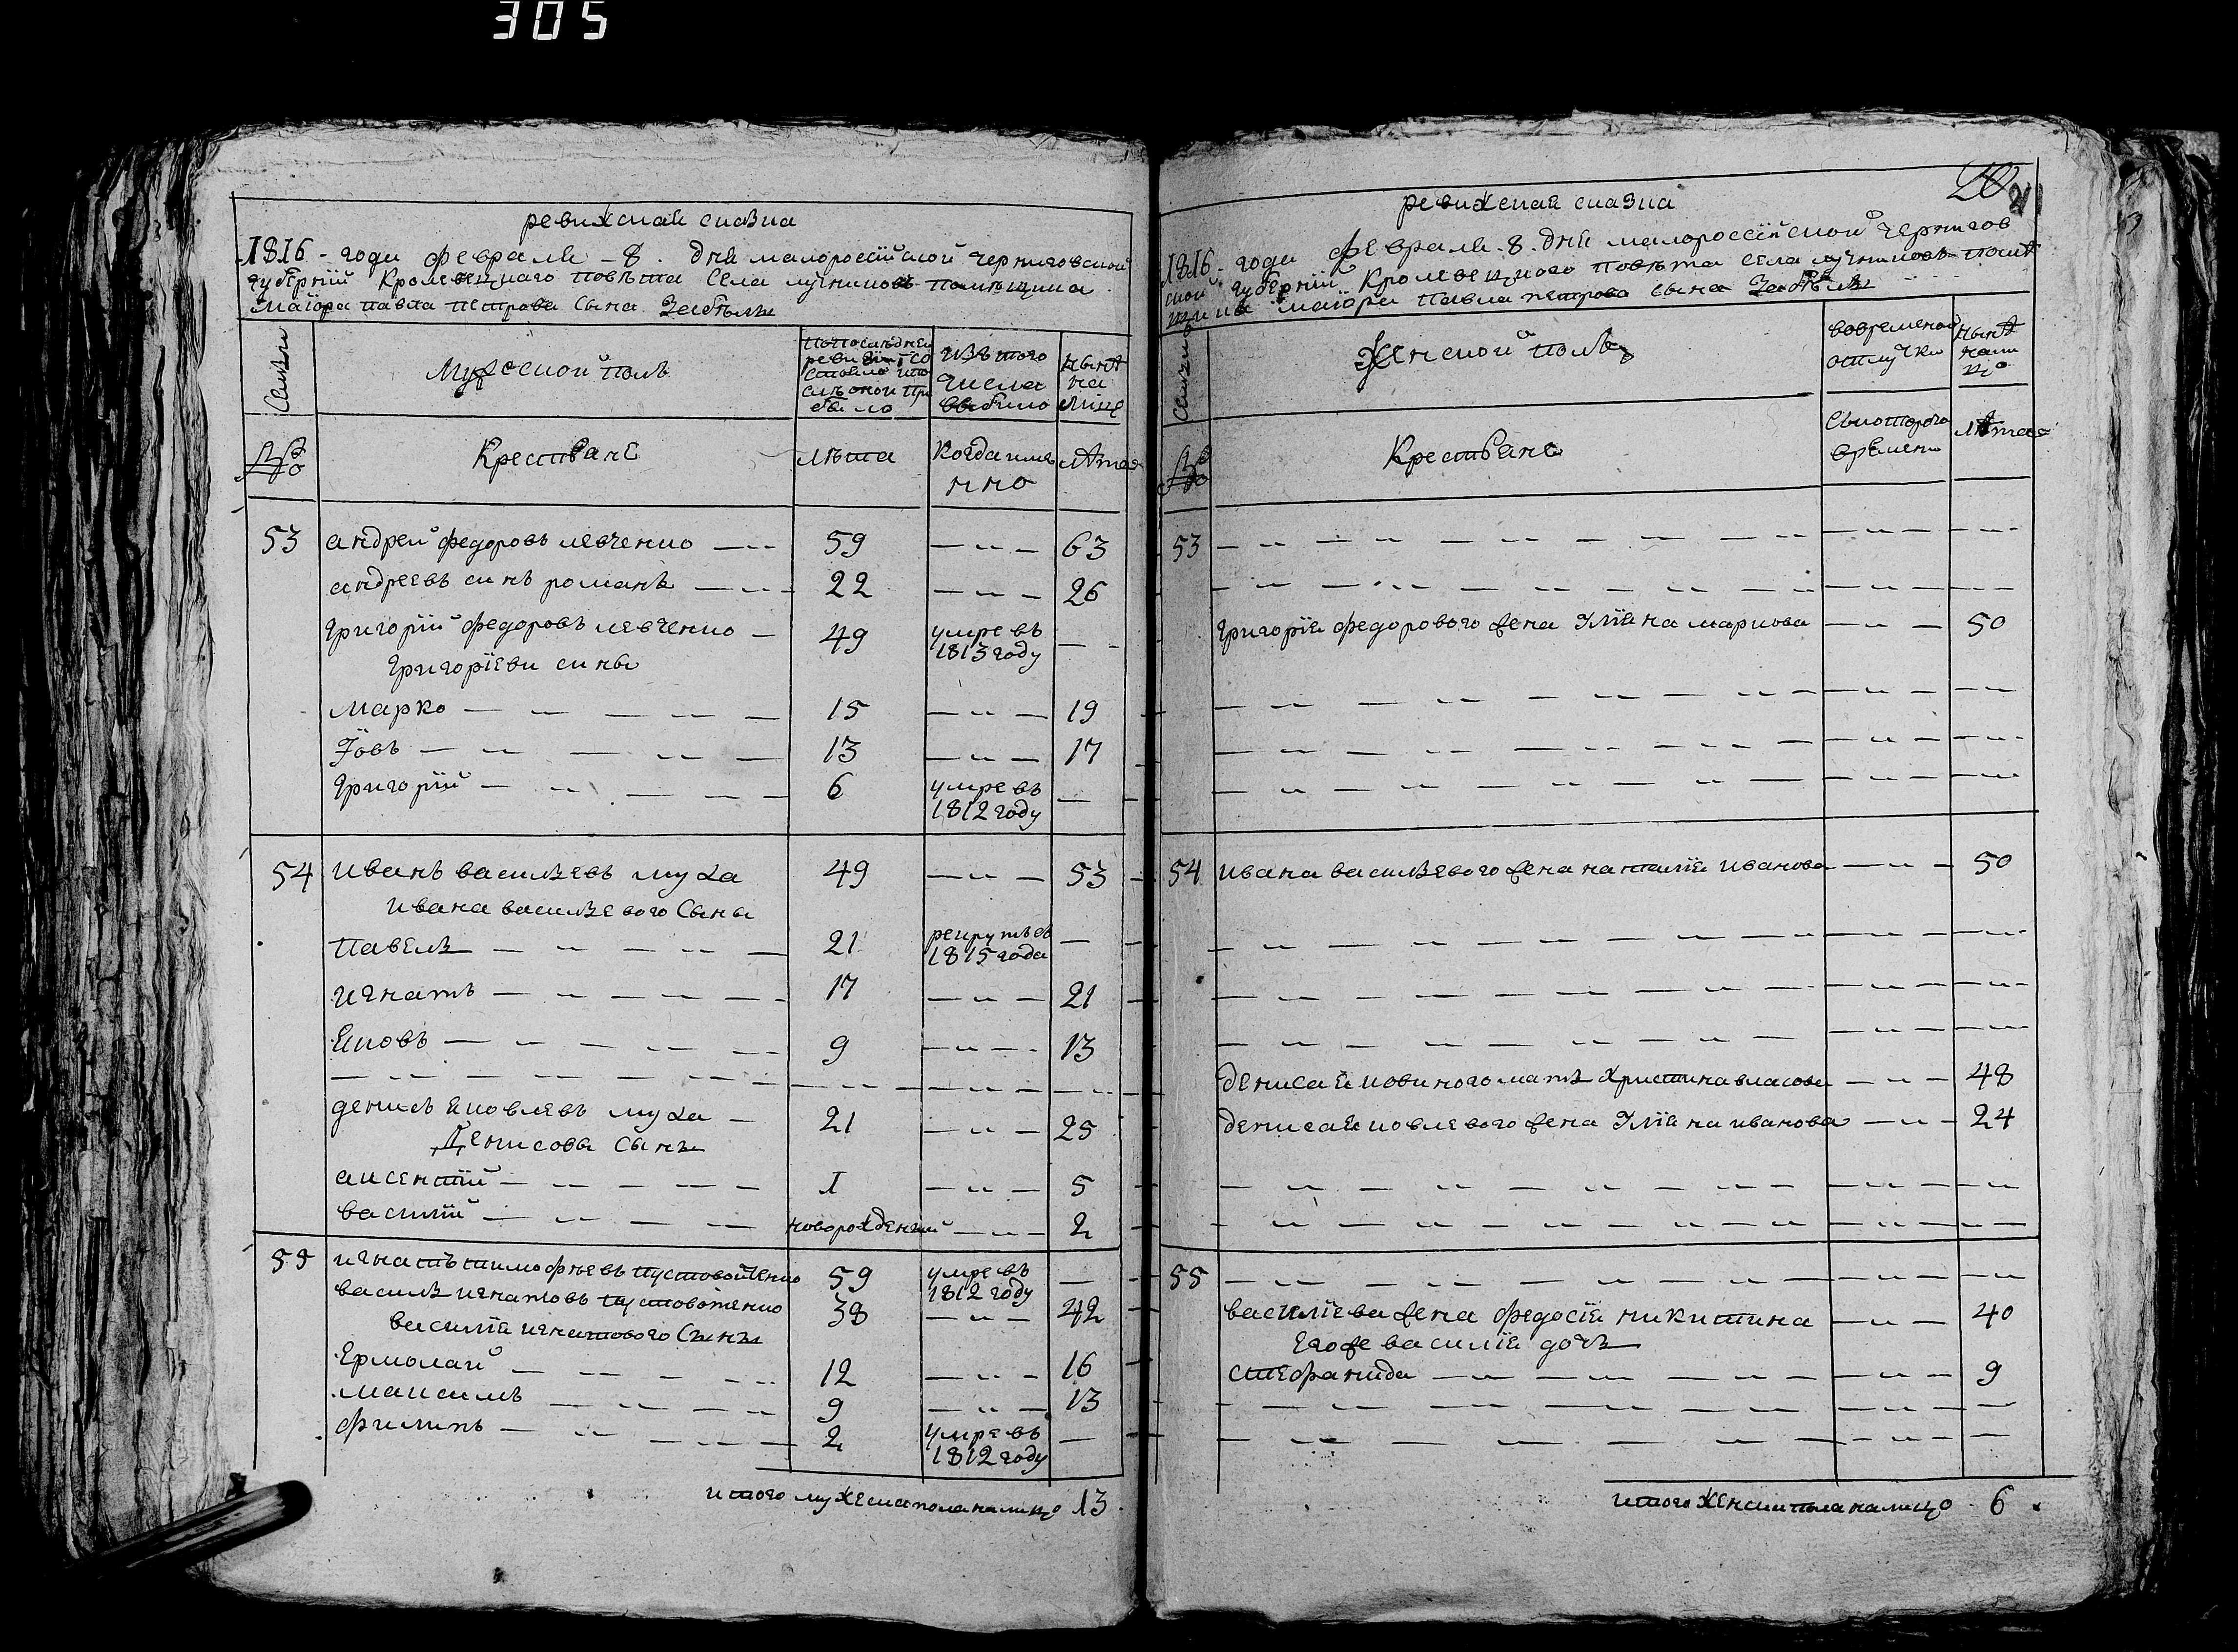 305
ревизская сказка
1816 - года февраля - 8 . дня малоросiйской черниговской
губернiй Кролевецкаго повѣта Села лучниковъ помѣщика
маiора павла петрова Сына
Семьи
Мужеской полъ
По последней
ревизiи со
стояло и по
слѣ оной при
было
Изъ того
числа
выбыло
нынѣ
на
лице
№
Крестьяне
лѣта
Когда имя
нно
лѣта
53 андрей федоровъ левченко 59 — „ — 63
андреевъ синъ романъ 22 — „ — 26
григорiй федоровъ левченко 49 умре въ 1813 году —
григорiеви сины
Марко 15 — „ — 19
Iовъ 13 — „ — 17
григорiй 6 умре въ 1812 году —
54 иванъ васильевъ муха 49 — „ — 53
ивана васильевого Сыны
павелъ 21 рекрутъ съ 1815 года —
игнатъ 17 — „ — 21
Яковъ 9 — „ — 13
денисъ яковлевъ муха 21 — „ — 25
Денисовы Сыны
аксентiй 1 — „ — 5
василiй новорожденный — „ — 2
55 игнатъ тимофѣевъ пустовойтенко 59 умре въ 1812 году —
василь игнатовъ пустовотенко 38 — „ — 42
василiя игнатового Сыны
Ермолай 12 — „ — 16
максимъ 9 — „ — 13
филипъ 2 умре въ 1812 году —
итого мужеска пола налицо 13
20
21
ревизская сказка
1816 - года февраля . 8 . дня малоросеiйской чернигов
ской губернiй Кролевецкого повѣта села лучниковъ помѣ
щика маiора павла петрова сына
Семьи
Женской полъ
вовременой
отлучки
нынѣ
нали
цо
№
Крестьяне
Съ которого
времени
лѣта
53
григорiя федорового жена Улiяна маркова — „ — 50
54 ивана васильевого жена наталiя иванова — „ — 50
дениса яковиного мать христина власова — „ — 48
дениса яковлевого жена Улiяна иванова — „ — 24
55
василiева жена федосiя никитина — „ — 40
Его же василiя дочь
стефанида — „ — 9
итого женска пола налицо 6 .